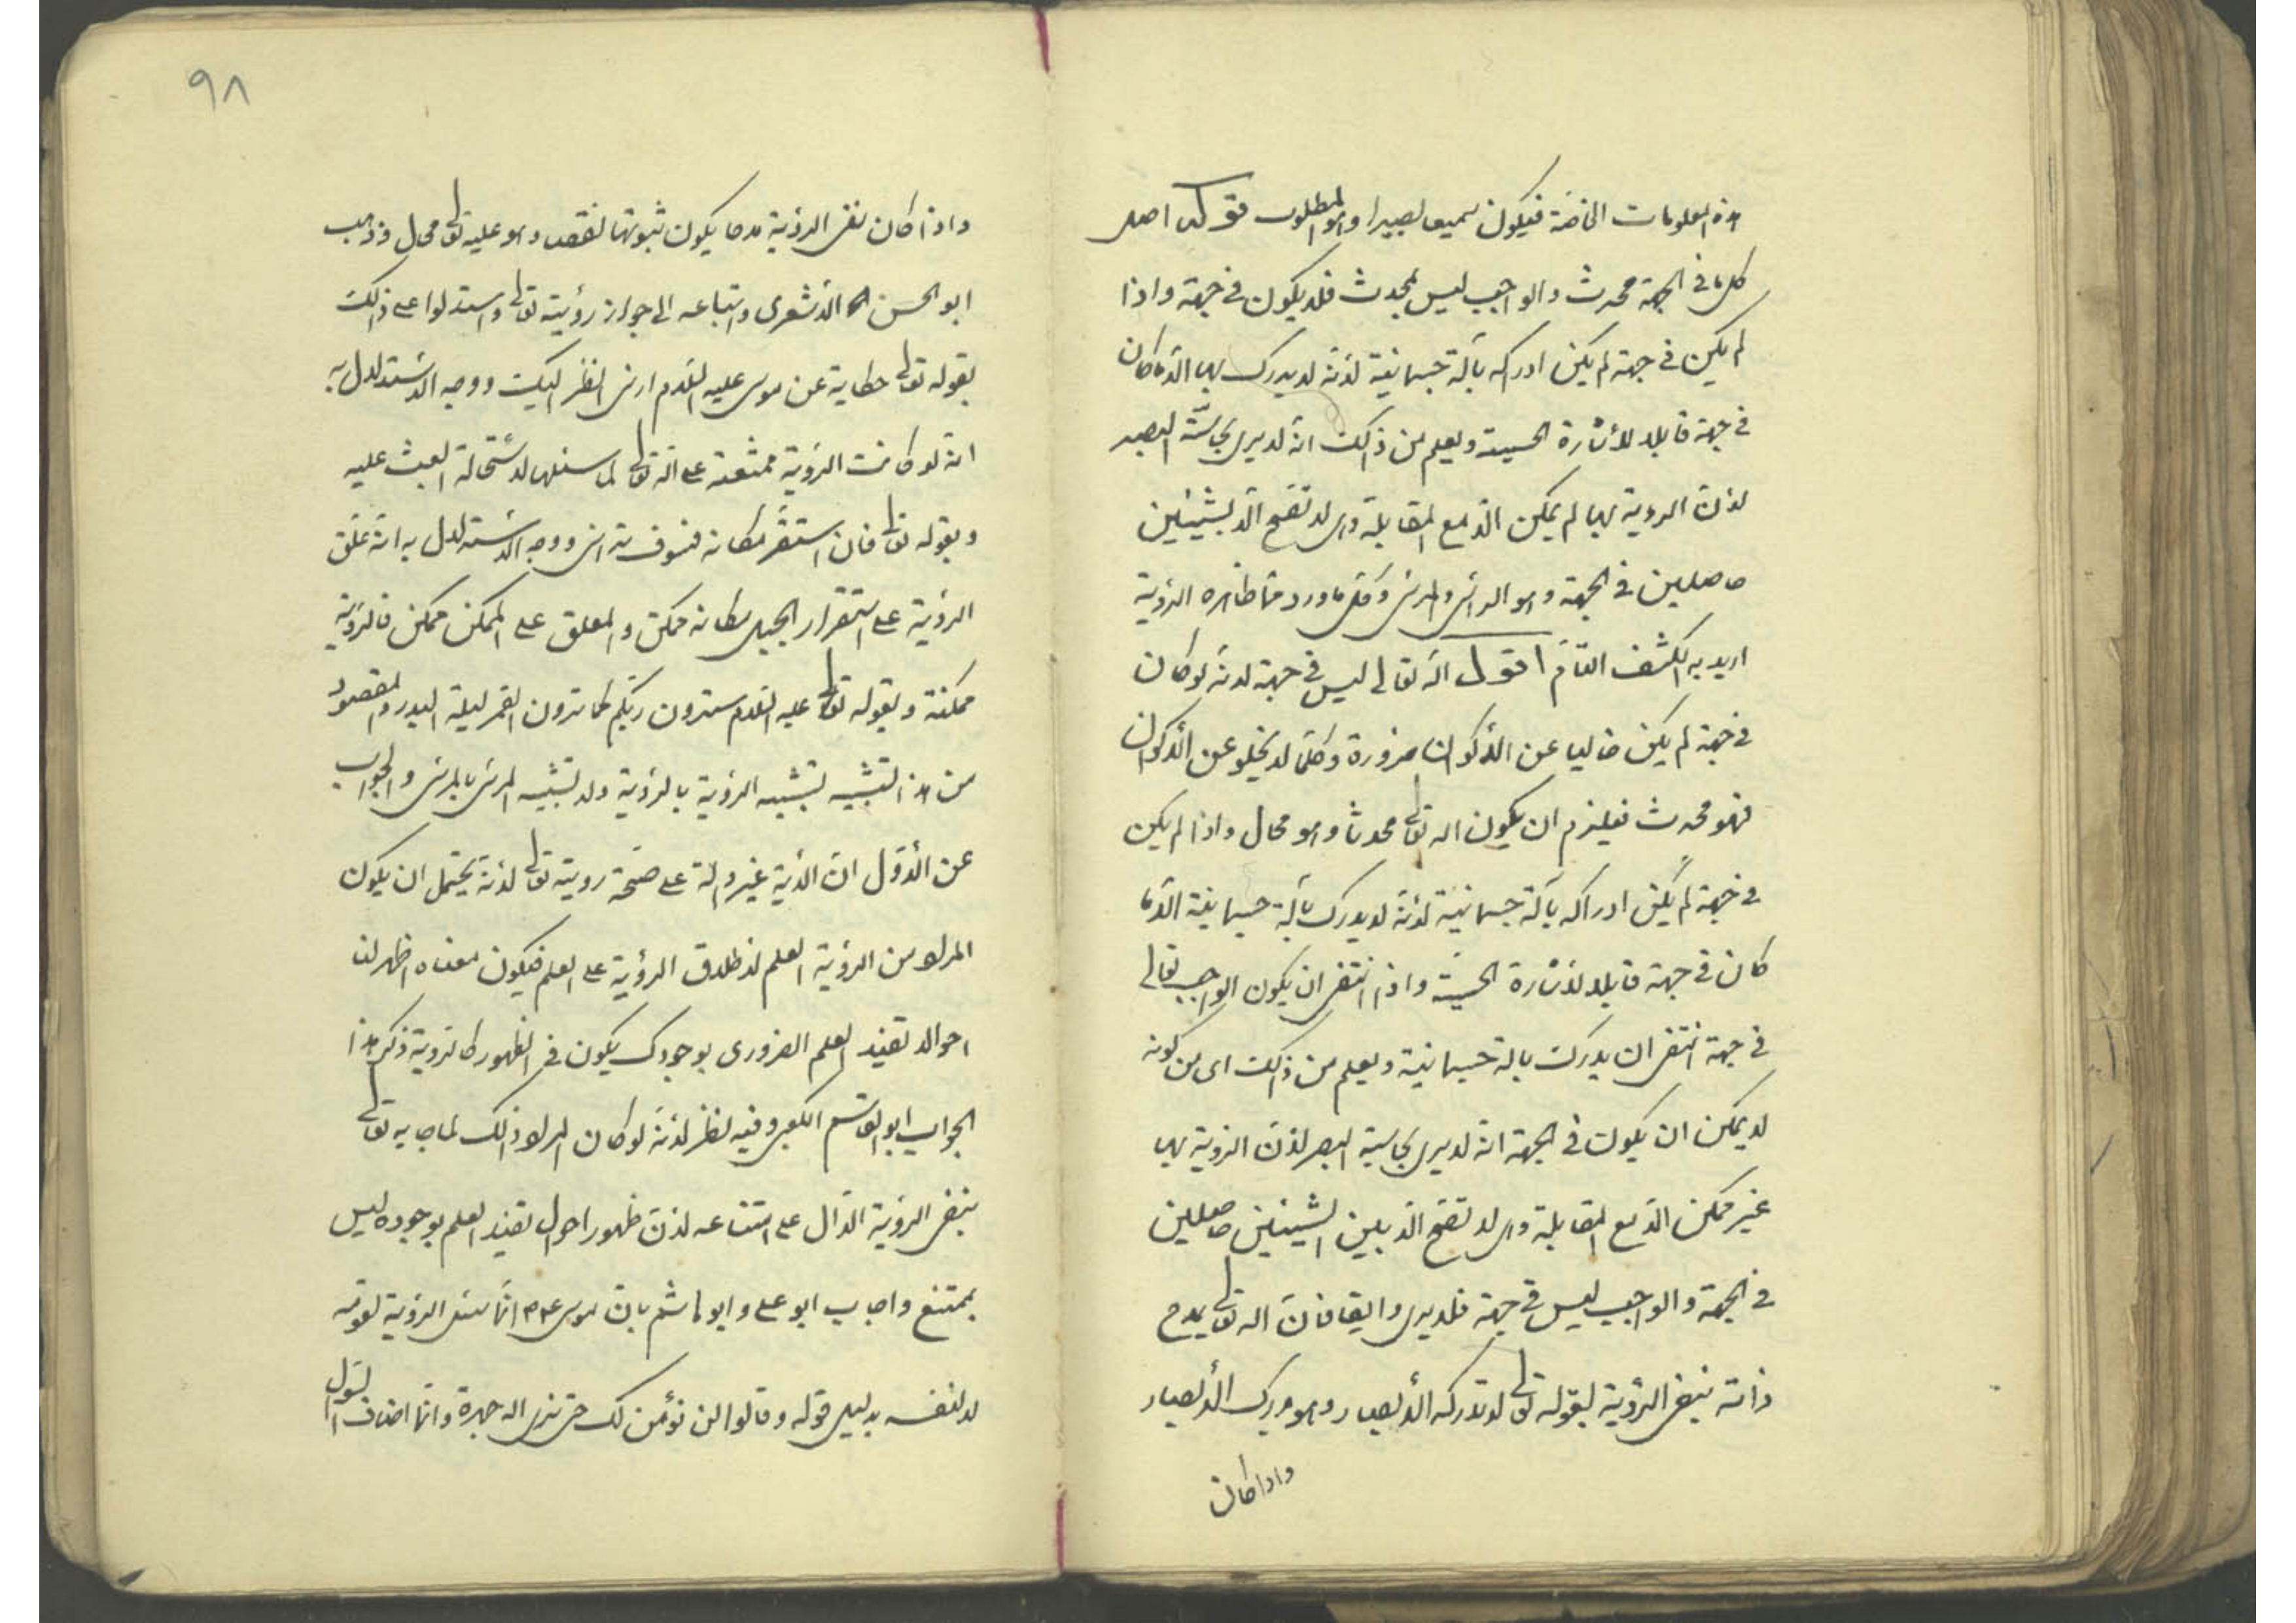 هذه المعلومات الخاصة فيكون سميعا بصيرا وهو المطلوب قوله اصل
كل ما فى الجهة محدث والواجب ليس بمحدث فلا يكون فى جهة واذا
لم يكن فى جهة لم يكن ادراكه بآلة جسمانية لأنه لا يدرك بها الا ما كان
فى جهة قابلا للأشارة الحسية ويعلم من ذلك انه لا يرى بحاسّة البصر
لأن الرؤية بها لم يمكن الا مع المقابلة وهى لا تصح الا بشيئين
حاصلين فى الجهة وهو الرائى والمرئى وكل ما ورد مما ظاهره الرؤية
اريد به الكشف التام اقول انه تعالى ليس فى جهة لانه لو كان
فى جهة لم يكن خاليا عن الأكوان ضرورة وكلما لا يخلو عن الأكوان
فهو محدث فيلزم ان يكون اله تعالى محدثا وهو محال واذا لم يكن
فى جهة لم يكن ادراكه بآلة جسمانية لأنه لا يدرك بآلة جسمانية الا ما
كان فى جهة قابلا لأشارة الحسية واذا انتفى ان يكون الواجب تعالى
فى جهة انتفى ان يدرك بالة جسمانية ويعلم من ذلك اى من كونه
لا يمكن ان يكون فى الجهة انه لا يرى بحاسية البصر لأن الرؤية بها
غير ممكن الا مع المقابلة وهى لا تصح الا بين الشيئين حاصلين
فى الجهة والواجب ليس فى جهة فلا يرى وايضا فان اله تعالى يمدح
ذاته بنفى الرؤية بقوله تعالى لا تدركه الأبصار وهو يدرك الأبصار
واذا كان
٩٨
واذا كان نفى الرؤية مدحا يكون ثبوتها نقصا وهو عليه تعالى محال وذهب
ابو الحسن الأشعرى واتباعه الى جواز رؤيته تعالى واستدلوا على ذلك
بقوله تعالى حكاية عن موسى عليه السلام ارنى انظر اليك ووجه الأستدلال به
انه لو كانت الرؤية ممتنعة على اله تعالى لما سئلها لأستحالة العبث عليه
وبقوله تعالى فان استقر مكانه فسوف ترانى ووجه الأستدلال به انه علق
الرؤية على استقرار الجبل مكانه ممكن والمعلق على الممكن ممكن فالرؤية
ممكنة وبقوله تعالى عليه السلام سترون ربّكم كما ترون القمر ليلة البدر والمقصود
من هذا التشبيه تشبيه الرؤية بالرؤية ولا تشبيه المرئى بالمرئى والجواب
عن الأوّل ان الأية غير دالّة على صحّة رويته تعالى لأنه يحتمل ان يكون
المراد من الرؤية العلم لأطلاق الرؤية على العلم فيكون معناه اظهر لنا
احوالا تفيد العلم الضرورى بوجودك يكون فى الظهور كالرؤية ذكر هذا
الجواب ابو القاسم الكعبى وفيه نظر لأنه لو كان المراد ذلك لما اجابه تعالى
بنفى الرؤية الدّال على امتناعه لأن ظهور احوال تفيد العلم بوجوده ليس
بممتنع واجاب ابو على وابو هاشم بان موسى عم انّما سئل الرؤية لقومه
لا لنفسه بدليل قوله وقالوا لن نؤمن لك حتى نرى اله جهرة وانّما اضاف السّوال